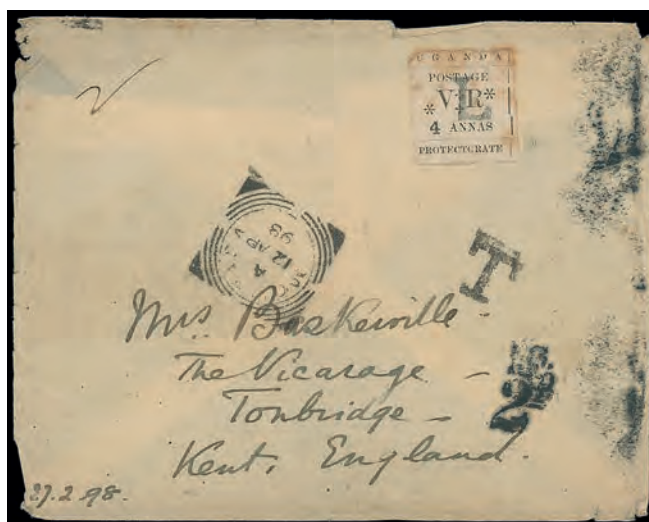 UGANDA
POSTAGE
*V.R*
L
4 ANNAS
PROTECTORATE
A
12 AP
98
T
Mrs. Baskerville.
The Vicarage -
Tonbridge -
Kent, England.
2
27.2.98.